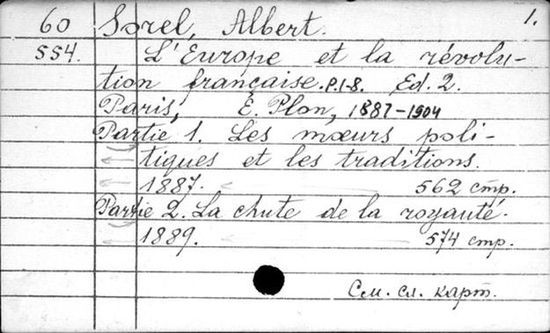 60 Sorel, Albert. 1.
554. L'Europe et la révolu-
tion française. P.1-8. Ed. 2.
Paris, E. Plon, 1887-1904
Partie 1. Les mœurs poli-
tiques et les traditions.
1887. 562 стр.
Partie 2. La chute de la royauté.
1889. 574 стр.
См. сл. карт.